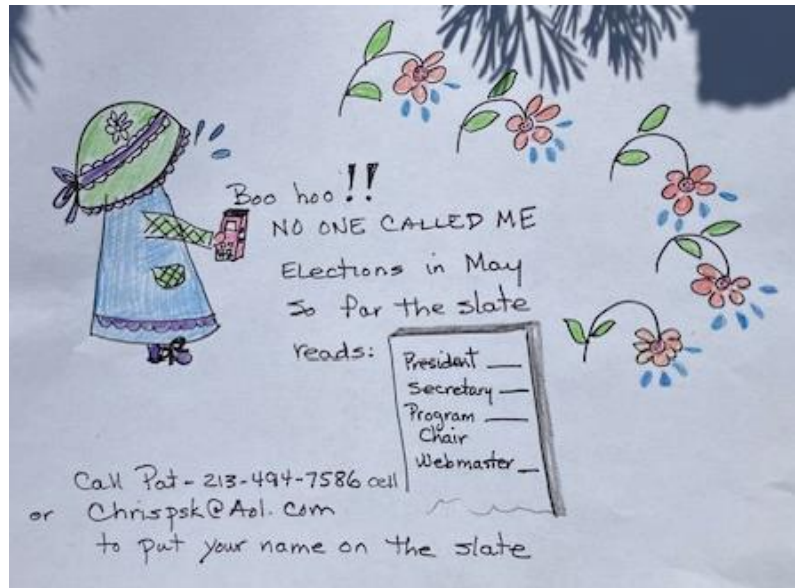 Boo hoo!!
NO ONE CALLED ME
Elections in May
So far the slate
reads:
President __
Secretary __
Program __
Chair
Webmaster _
Call Pat - 213-494-7586 cell
or Chrispsk@Aol.com
to put your name on the slate